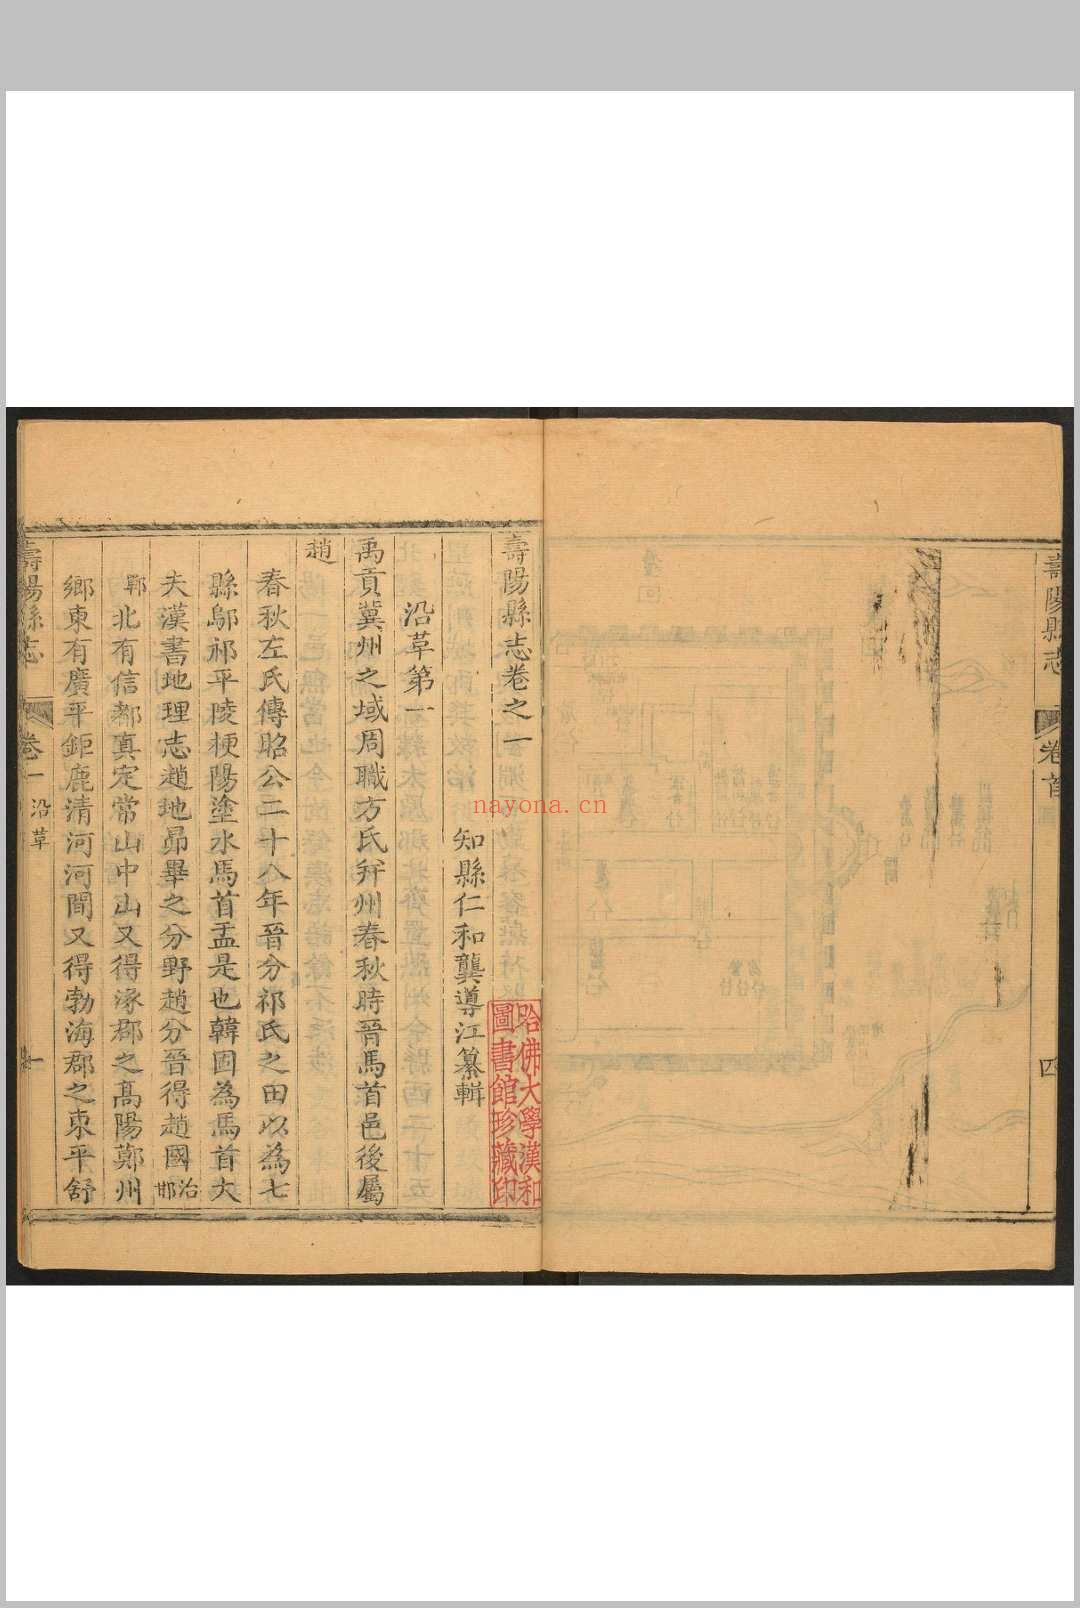 壽陽縣志
卷首
四
壽陽縣志卷之一
知縣仁和龔導江纂輯
沿革第一
禹貢冀州之域周職方氏并州春秋時晉馬首邑後屬
趙
春秋左氏傳昭公二十八年晉分祁氏之田以為七
縣鄔祁平陵梗陽塗水馬首盂是也韓固為馬首大
夫漢書地理志趙地昴畢之分野趙分晉得趙國治邯
鄲北有信都真定常山中山又得涿郡之高陽鄭州
鄉東有廣平鉅鹿清河河間又得勃海郡之東平舒
壽陽縣志
卷一
沿革
一
哈佛大學漢和
圖書館珍藏印
nayona.cn